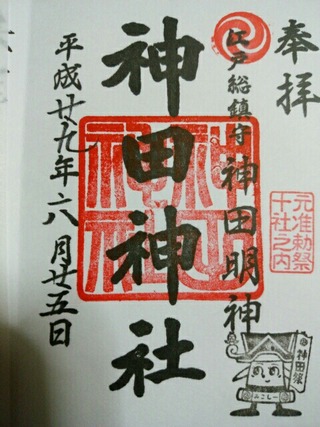 奉拝
元准勅祭
十社之内
江戸総鎮守 神田明神
神田神社
神田
神社
平成廿九年六月廿五日
神田祭
みこしー